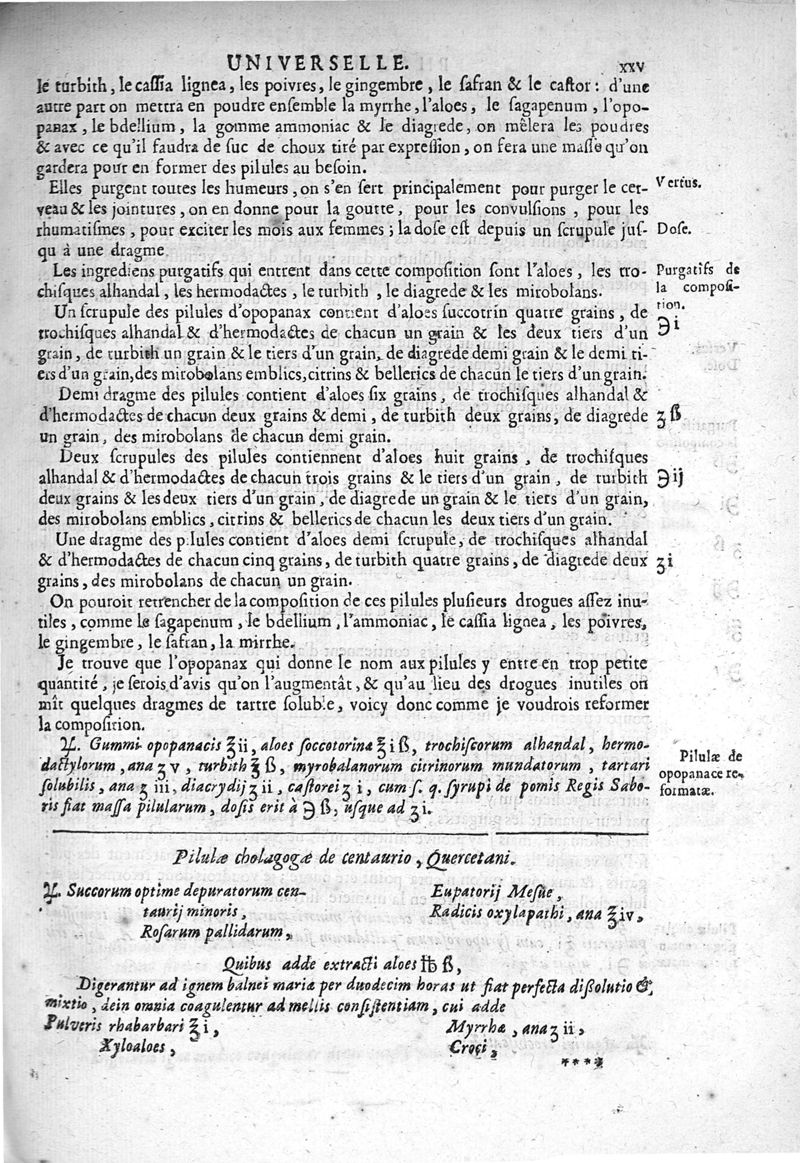 UNIVERSELLE. xxv
le turbith, le caſſia lignea, les poivres, le gingembre, le ſafran & le caſtor : d'une
autre part on mettra en poudre enſemble la myrrhe, l'aloes, le ſagapenum, l'opo-
panax, le bdellium, la gomme ammoniac & le diagrede, on mêlera les poudres
& avec ce qu'il faudra de ſuc de choux tiré par expreſſion, on fera une maſſe qu'on
gardera pour en former des pilules au beſoin.
Elles purgent toutes les humeurs, on s'en ſert principalement pour purger le cer-
veau & les jointures, on en donne pour la goutte, pour les convulſions, pour les
rhumatiſmes, pour exciter les mois aux femmes ; la doſe eſt depuis un ſcrupule juſ-
qu à une dragme
Vertus.
Doſe.
Les ingrediens purgatifs qui entrent dans cette compoſition ſont l'aloes, les tro-
chiſques alhandal, les hermodactes, le turbith, le diagrede & les mirobolans.
Purgatifs de
la compoſi-
tion.
Un ſcrupule des pilules d'opopanax contient d'aloes ſuccotrin quatre grains, de
trochiſques alhandal & d'hermodactes de chacun un grain & les deux tiers d'un
grain, de turbith un grain & le tiers d'un grain, de diagrede demi grain & le demi ti-
ers d'un grain, des mirobolans emblics, citrins & bellerics de chacun le tiers d'un grain.
℈i
Demi dragme des pilules contient d'aloes ſix grains, de trochiſques alhandal &
d'hermodactes de chacun deux grains & demi, de turbith deux grains, de diagrede
un grain, des mirobolans de chacun demi grain.
ʒß
Deux ſcrupules des pilules contiennent d'aloes huit grains, de trochiſques
alhandal & d'hermodactes de chacun trois grains & le tiers d'un grain, de turbith
deux grains & les deux tiers d'un grain, de diagrede un grain & le tiers d'un grain,
des mirobolans emblics, citrins & bellerics de chacun les deux tiers d'un grain.
℈ij
Une dragme des pilules contient d'aloes demi ſcrupule, de trochiſques alhandal
& d'hermodactes de chacun cinq grains, de turbith quatre grains, de diagrede deux
grains, des mirobolans de chacun un grain.
ʒi
On pouroit retrencher de la compoſition de ces pilules pluſieurs drogues aſſez inu-
tiles, comme le ſagapenum, le bdellium, l'ammoniac, le caſſia lignea, les poivres,
le gingembre, le ſafran, la mirrhe.
Je trouve que l'opopanax qui donne le nom aux pilules y entre en trop petite
quantité, je ſerois d'avis qu'on l'augmentât, & qu'au lieu des drogues inutiles on
mît quelques dragmes de tartre ſoluble, voicy donc comme je voudrois reformer
la compoſition.
℞. Gummi opopanacis ℥ii, aloes ſoccotorinæ ℥i ß, trochiſcorum alhandal, hermo-
dactylorum, ana ʒv, turbith ℥ß, myrobalanorum citrinorum mundatorum, tartari
ſolubilis, ana ʒiii, diacrydij ʒii, caſtorei ʒi, cum ſ. q. ſyrupi de pomis Regis Sabo-
ris fiat maſſa pilularum, doſis erit à ℈ß, uſque ad ʒi.
Pilulæ de
opopanace re-
formatæ.
Pilulæ cholagogæ de centaurio, Quercetani.
℞. Succorum optime depuratorum cen-
taurij minoris,
Roſarum pallidarum,
Eupatorij Meſüe,
Radicis oxylapathi, ana ℥iv,
Quibus adde extracti aloes ℔ß,
Digerantur ad ignem balnei mariæ per duodecim horas ut fiat perfecta diſſolutio &
mixtio, dein omnia coagulentur ad mellis conſiſtentiam, cui adde
Pulveris rhabarbari ℥i,
Xyloaloes,
Myrrhæ, ana ʒii,
Croci,
****